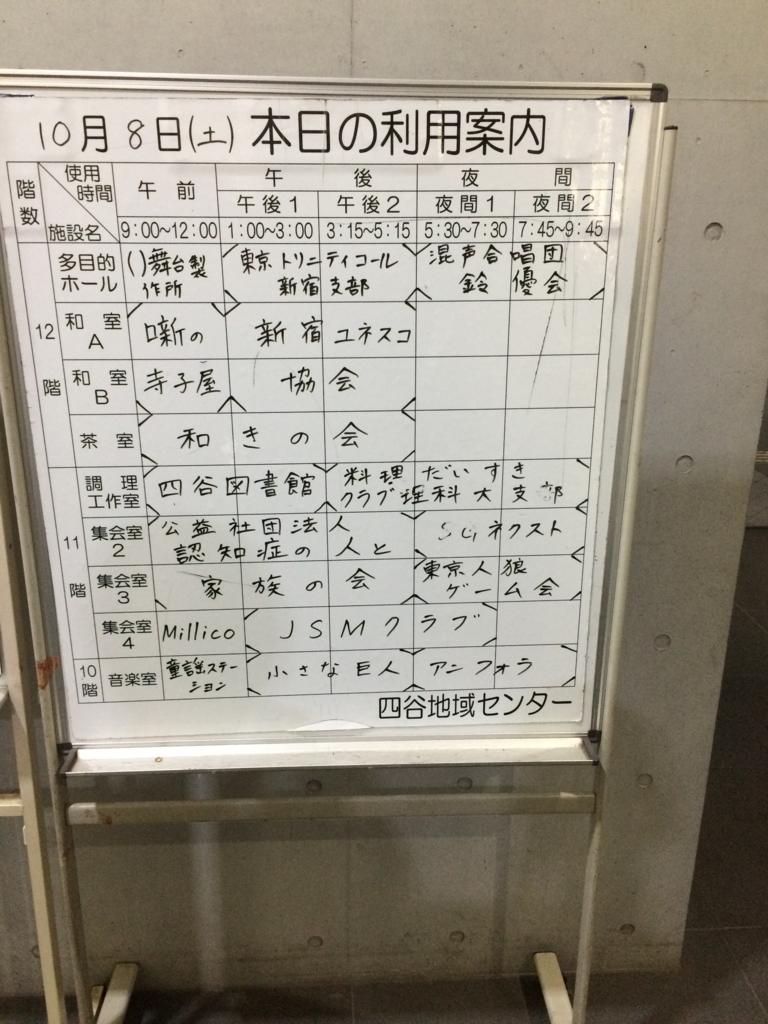 10月8日(土) 本日の利用案内
階数 使用時間 施設名 午前 午後 夜間
午後1 午後2 夜間1 夜間2
9:00~12:00 1:00~3:00 3:15~5:15 5:30~7:30 7:45~9:45
多目的 ()舞台製 東京トリニティコール 混声合唱団
ホール 作所 新宿支部 鈴優会
12階
和室A 噺の 新宿ユネスコ
和室B 寺子屋 協会
茶室 和きの会
11階
調理 四谷図書館 料理だいすき
工作室 クラブ理科大支部
集会室 公益社団法人 ネクスト
2 認知症の人と
集会室 家族の会 東京人狼
3 ゲーム会
集会室
4 Millico JSMクラブ
10階 音楽室 童謡ステーション 小さな巨人 アンフォラ
四谷地域センター